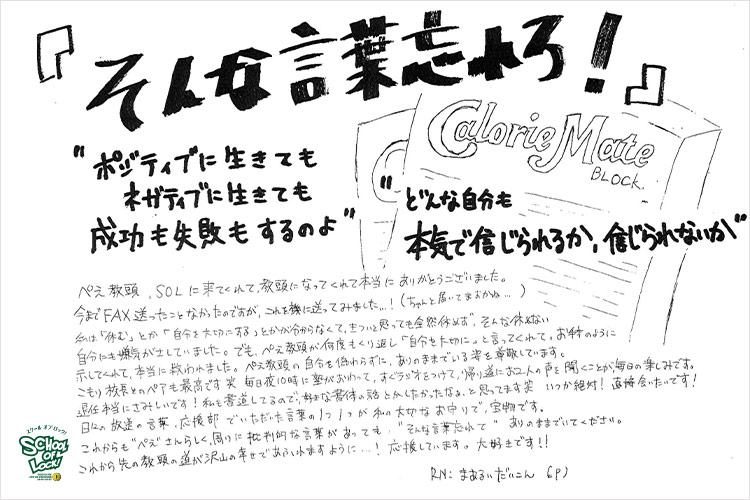 『そんな言葉忘れろ！』
Calorie Mate
BLOCK.
"ポジティブに生きても
ネガティブに生きても
成功も失敗もするのよ"
"どんな自分も
本気で信じられるか、信じられないか"
ぺえ教頭、SOLに来てくれて、教頭になってくれて本当にありがとうございました。
今までFAX送ったことなかったのですが、これを機に送ってみました…！(ちゃんと届いてますかね…)
私は「休む」とか「自分を大切にする」とかが分からなくて、きついと思っても全然休めず、そんな休めない
自分にも嫌気がさしていました。でも、ぺえ教頭が何度もくり返し「自分を大切に」と言ってくれて、お手本のように
示してくれて、本当に救われました。ぺえ教頭の自分を偽わらずに、ありのままでいる姿を尊敬しています。
こもり校長とのペアも最高です笑 毎日夜10時に塾がおわって、すぐラジオをつけて、帰り道にお二人の声を聞くことが毎日の楽しみです。
退任本当にさみしいです！私も書道してるので、好きな書体の話とかしたかったなぁ、と思ってます笑 いつか絶対！直接会いたいです！
日々の放送の言葉、応援部でいただいた言葉の1つ1つが私の大切なお守りで、宝物です。
これからも"ぺえ"さんらしく、周りに批判的な言葉があっても、"そんな言葉忘れて"ありのままでいてください。
これから先の教頭の道が沢山の幸せであふれますように…！応援しています。大好きです！！
RN：まあるいだいこん
スクール オブ ロック！
SCHOOL
OF
LOCK!